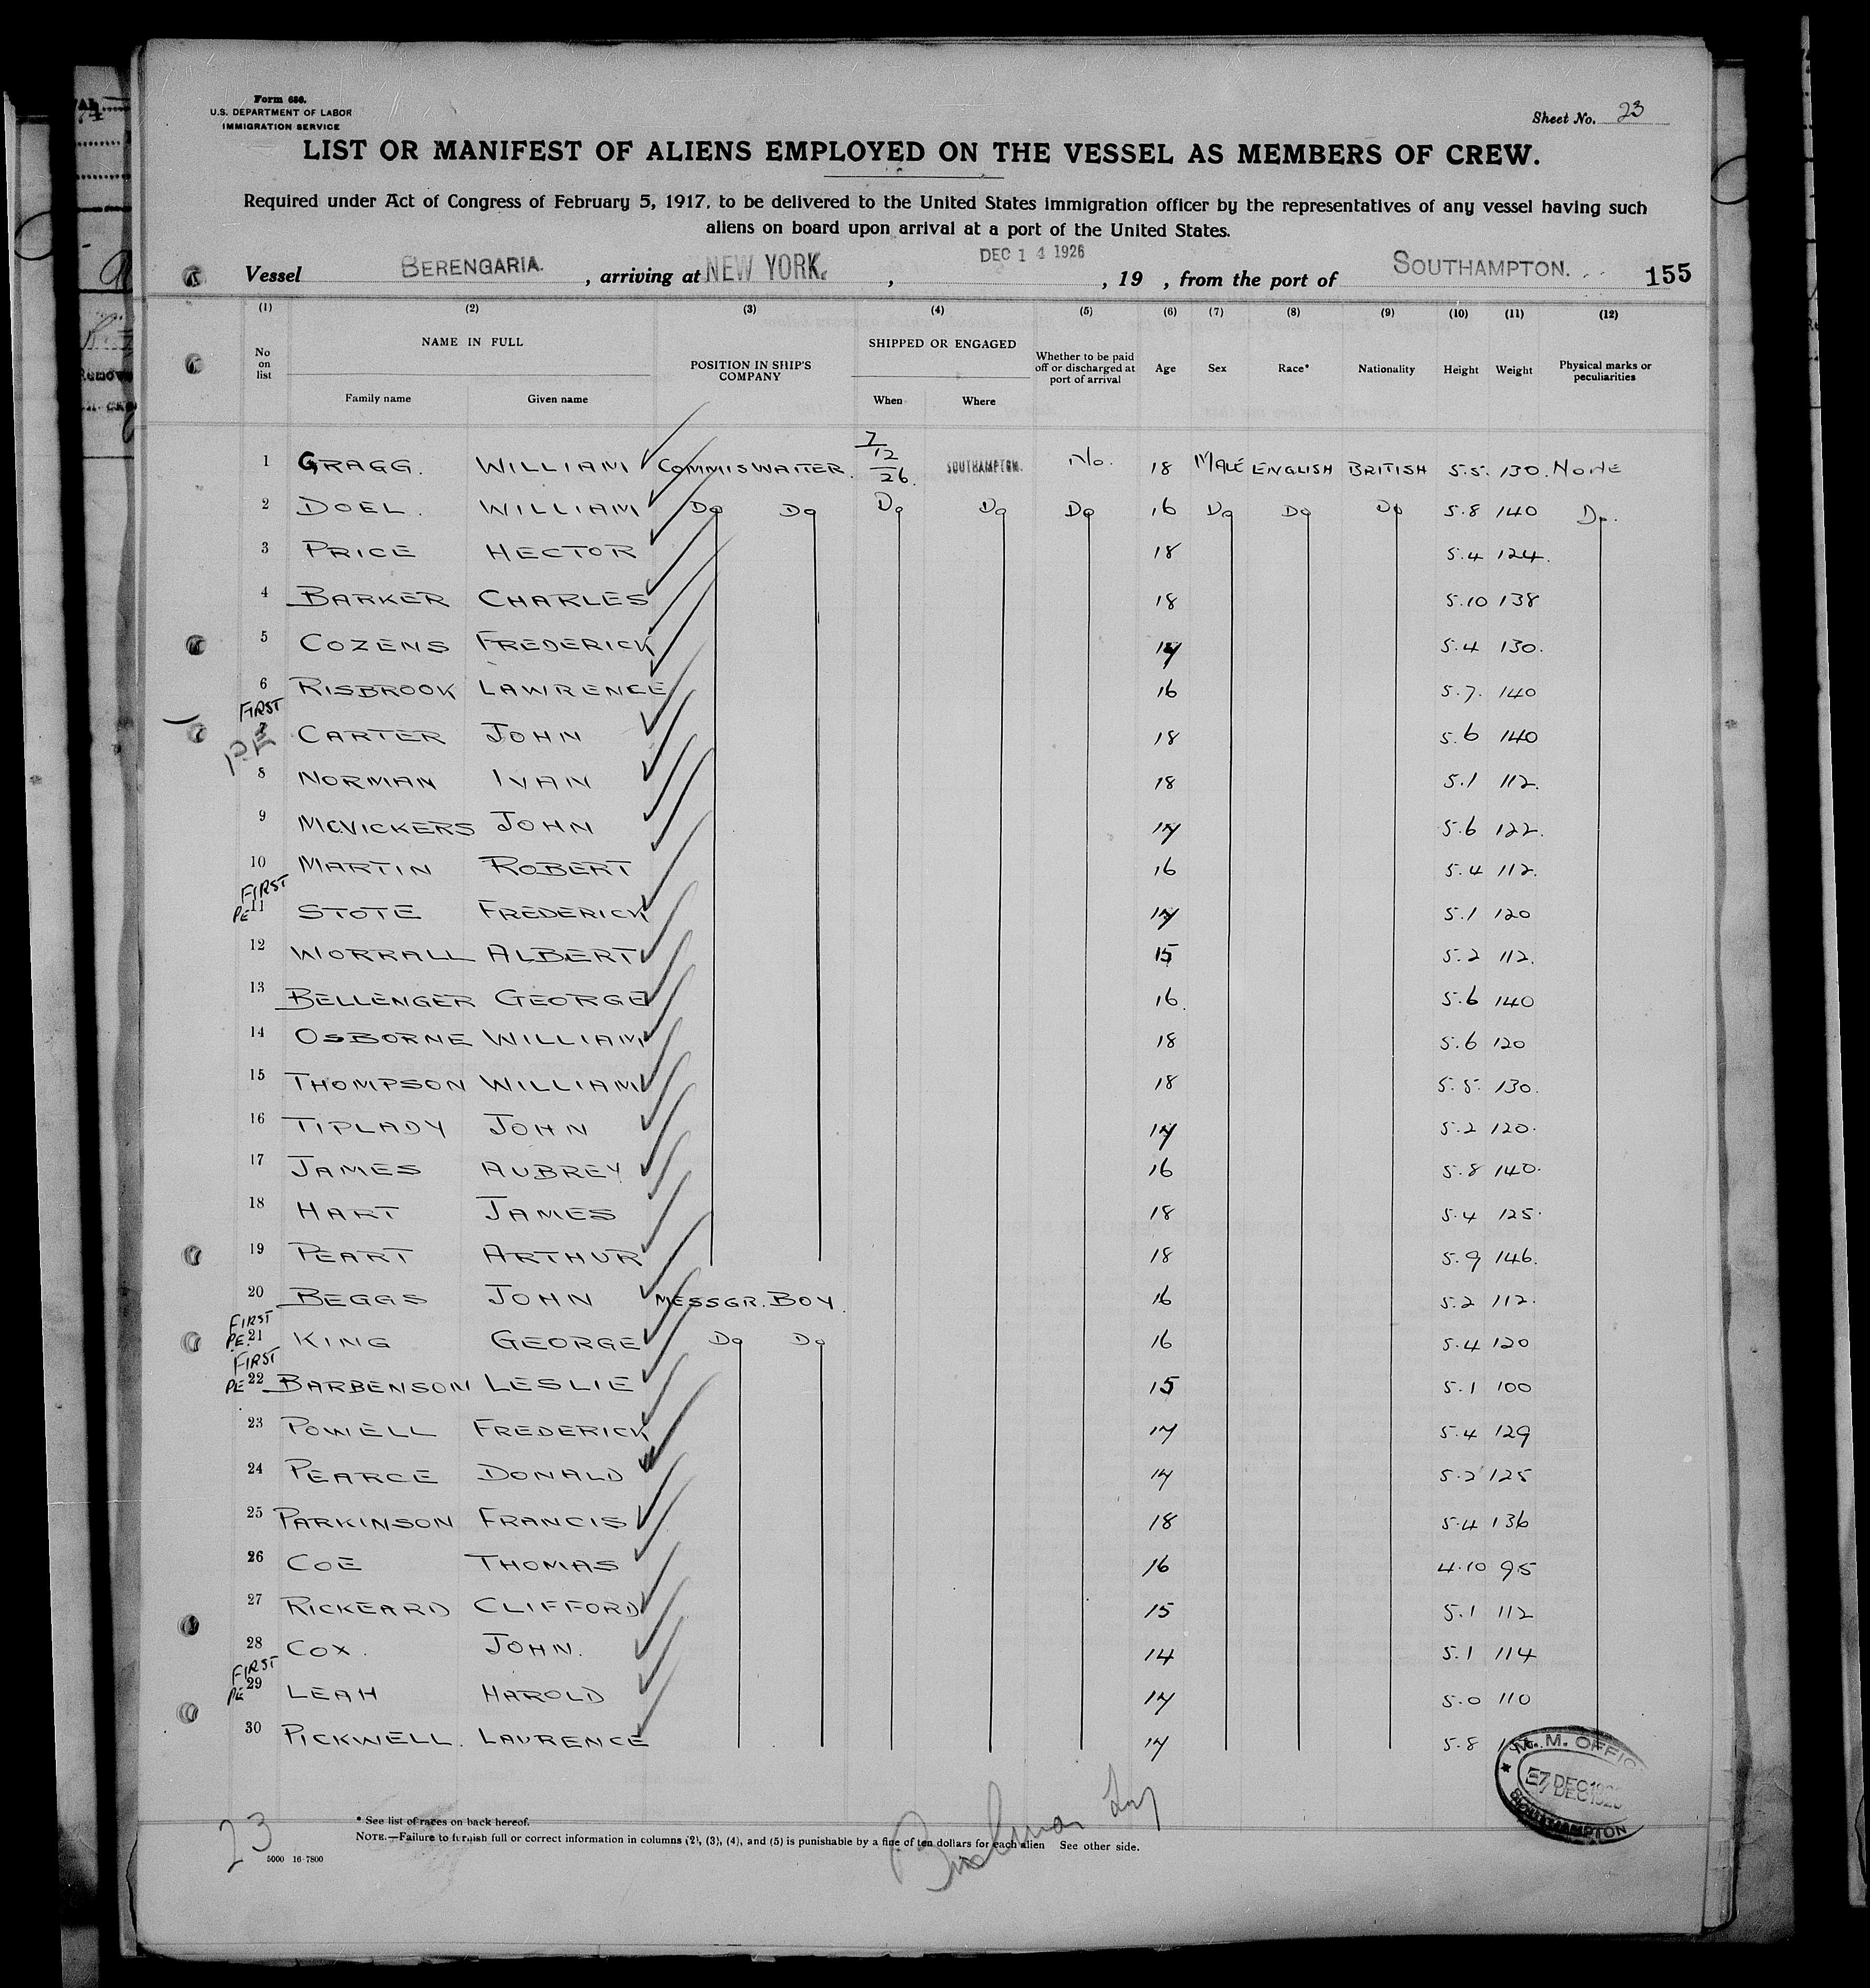 Form 686.
U.S. DEPARTMENT OF LABOR
IMMIGRATION SERVICE
Sheet No. 23
LIST OR MANIFEST OF ALIENS EMPLOYED ON THE VESSEL AS MEMBERS OF CREW.
Required under Act of Congress of February 5, 1917, to be delivered to the United States immigration officer by the representatives of any vessel having such
aliens on board upon arrival at a port of the United States.
Vessel BERENGARIA. , arriving at NEW YORK. , DEC 14 1926 , 19 , from the port of SOUTHAMPTON. 155
(1) (2) (3) (4) (5) (6) (7) (8) (9) (10) (11) (12)
No on list NAME IN FULL Family name Given name POSITION IN SHIP'S COMPANY SHIPPED OR ENGAGED When Where Whether to be paid off or discharged at port of arrival Age Sex Race* Nationality Height Weight Physical marks or peculiarities
1 GRAGG. WILLIAM COMMIS WAITER. 7/12/26. SOUTHAMPTON. No. 18 MALE ENGLISH BRITISH 5.5. 130. NONE
2 DOEL. WILLIAM Do Do Do Do Do 16 Do Do Do 5.8 140 Do.
3 PRICE HECTOR 18 5.4 124.
4 BARKER CHARLES 18 5.10 138
5 COZENS FREDERICK 17 5.4 130.
6 RISBROOK LAWRENCE 16 5.7. 140
FIRST
PE 7 CARTER JOHN 18 5.6 140
8 NORMAN IVAN 18 5.1 112.
9 McVICKERS JOHN 17 5.6 122.
10 MARTIN ROBERT 16 5.4 112.
FIRST
PE 11 STOTE FREDERICK 17 5.1 120
12 WORRALL ALBERT 15 5.2 112.
13 BELLENGER GEORGE 16. 5.6 140
14 OSBORNE WILLIAM 18 5.6 120
15 THOMPSON WILLIAM 18 5.5. 130.
16 TIPLADY JOHN 17 5.2 120.
17 JAMES AUBREY 16 5.8 140.
18 HART JAMES 18 5.4 125.
19 PEART ARTHUR 18 5.9 146.
20 BEGGS JOHN MESSGR. BOY. 16 5.2 112.
FIRST
P.E. 21 KING GEORGE Do Do 16 5.4 120
FIRST
PE 22 BARBENSON LESLIE 15 5.1 100
23 POWELL FREDERICK 17 5.4 129
24 PEARCE DONALD 17 5.2 125
25 PARKINSON FRANCIS 18 5.4 136
26 COE THOMAS 16 4.10 95
27 RICKEARD CLIFFORD 15 5.1 112
28 COX. JOHN. 14 5.1 114
FIRST
PE 29 LEAH HAROLD 17 5.0 110
30 PICKWELL. LAURENCE 17 5.8
M. M. OFFIC
7 DEC 1926
SOUTHAMPTON
23
* See list of races on back hereof.
NOTE.—Failure to furnish full or correct information in columns (2), (3), (4), and (5) is punishable by a fine of ten dollars for each alien See other side.
5000 16-7800